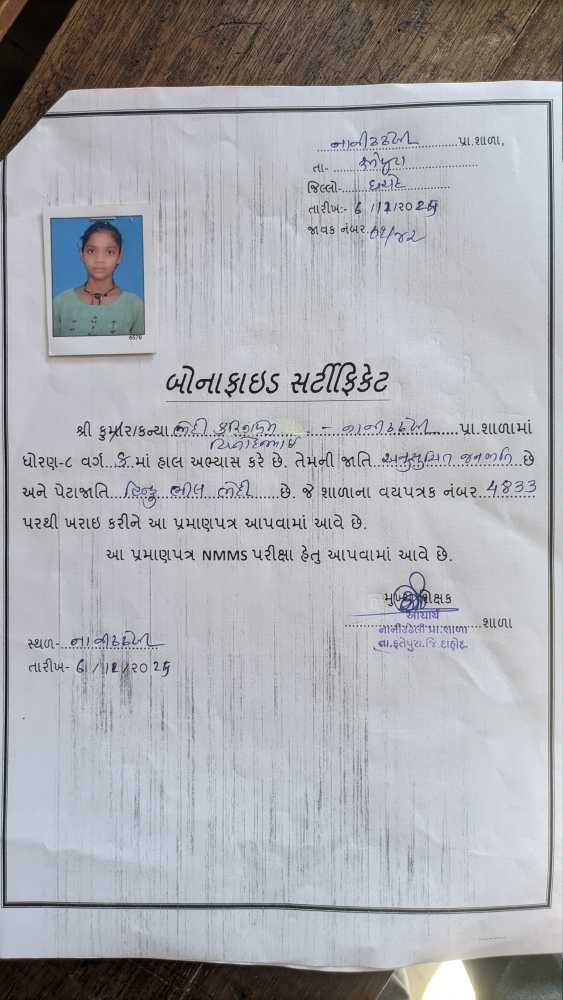 નાનીઢઢેલી પ્રા.શાળા,
તા- ફતેપુરા
જિલ્લો- દાહોદ
તારીખ:- 6 /12/2025
જાવક નંબર.
6570
બોનાફાઇડ સર્ટીફિકેટ
શ્રી કુમાર/કન્યા - નાનીઢઢેલી પ્રા.શાળામાં
ધોરણ-૮ વર્ગ માં હાલ અભ્યાસ કરે છે. તેમની જાતિ અનુસુચિત જનજાતિ છે
અને પેટાજાતિ હિન્દુ ભીલ છે. જે શાળાના વયપત્રક નંબર 4833
પરથી ખરાઇ કરીને આ પ્રમાણપત્ર આપવામાં આવે છે.
આ પ્રમાણપત્ર NMMS પરીક્ષા હેતુ આપવામાં આવે છે.
મુખ્ય શિક્ષક
આચાર્ય
શાળા
નાનીઢઢેલી પ્રા.શાળા
તા.ફતેપુરા.જિ.દાહોદ
સ્થળ- નાનીઢઢેલી
તારીખ- 6 /12/2025